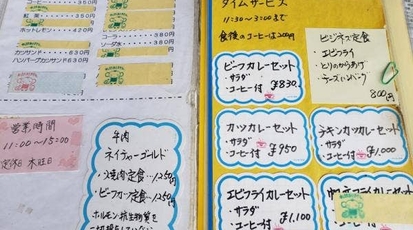 紅茶 350円
ホットレモン 420円
カツサンド 830円
ハンバーグカツサンド 930円
380円
350円
コーラ 380円
ソーダ水 380円
営業時間
11:00〜15:00
定休日 木曜日
牛肉
ネイチャーゴールド
・焼肉定食…1250円
・ビーフカツ定食…1250円
ホルモン、抗生物質を
タイムサービス
11:30〜3:00まで
食後のコーヒーは200円
ビーフカレーセット
・サラダ
・コーヒー付 ¥830.
ビジネス定食
・エビフライ
・とりのからあげ
・チーズハンバーグ
800円
カツカレーセット
・サラダ
・コーヒー付 ¥950
チキンカツカレーセット
・サラダ
・コーヒー付 ¥1,000
エビフライカレーセット
・サラダ
・コーヒー付 ¥1,100
・サラダ
・コーヒー付